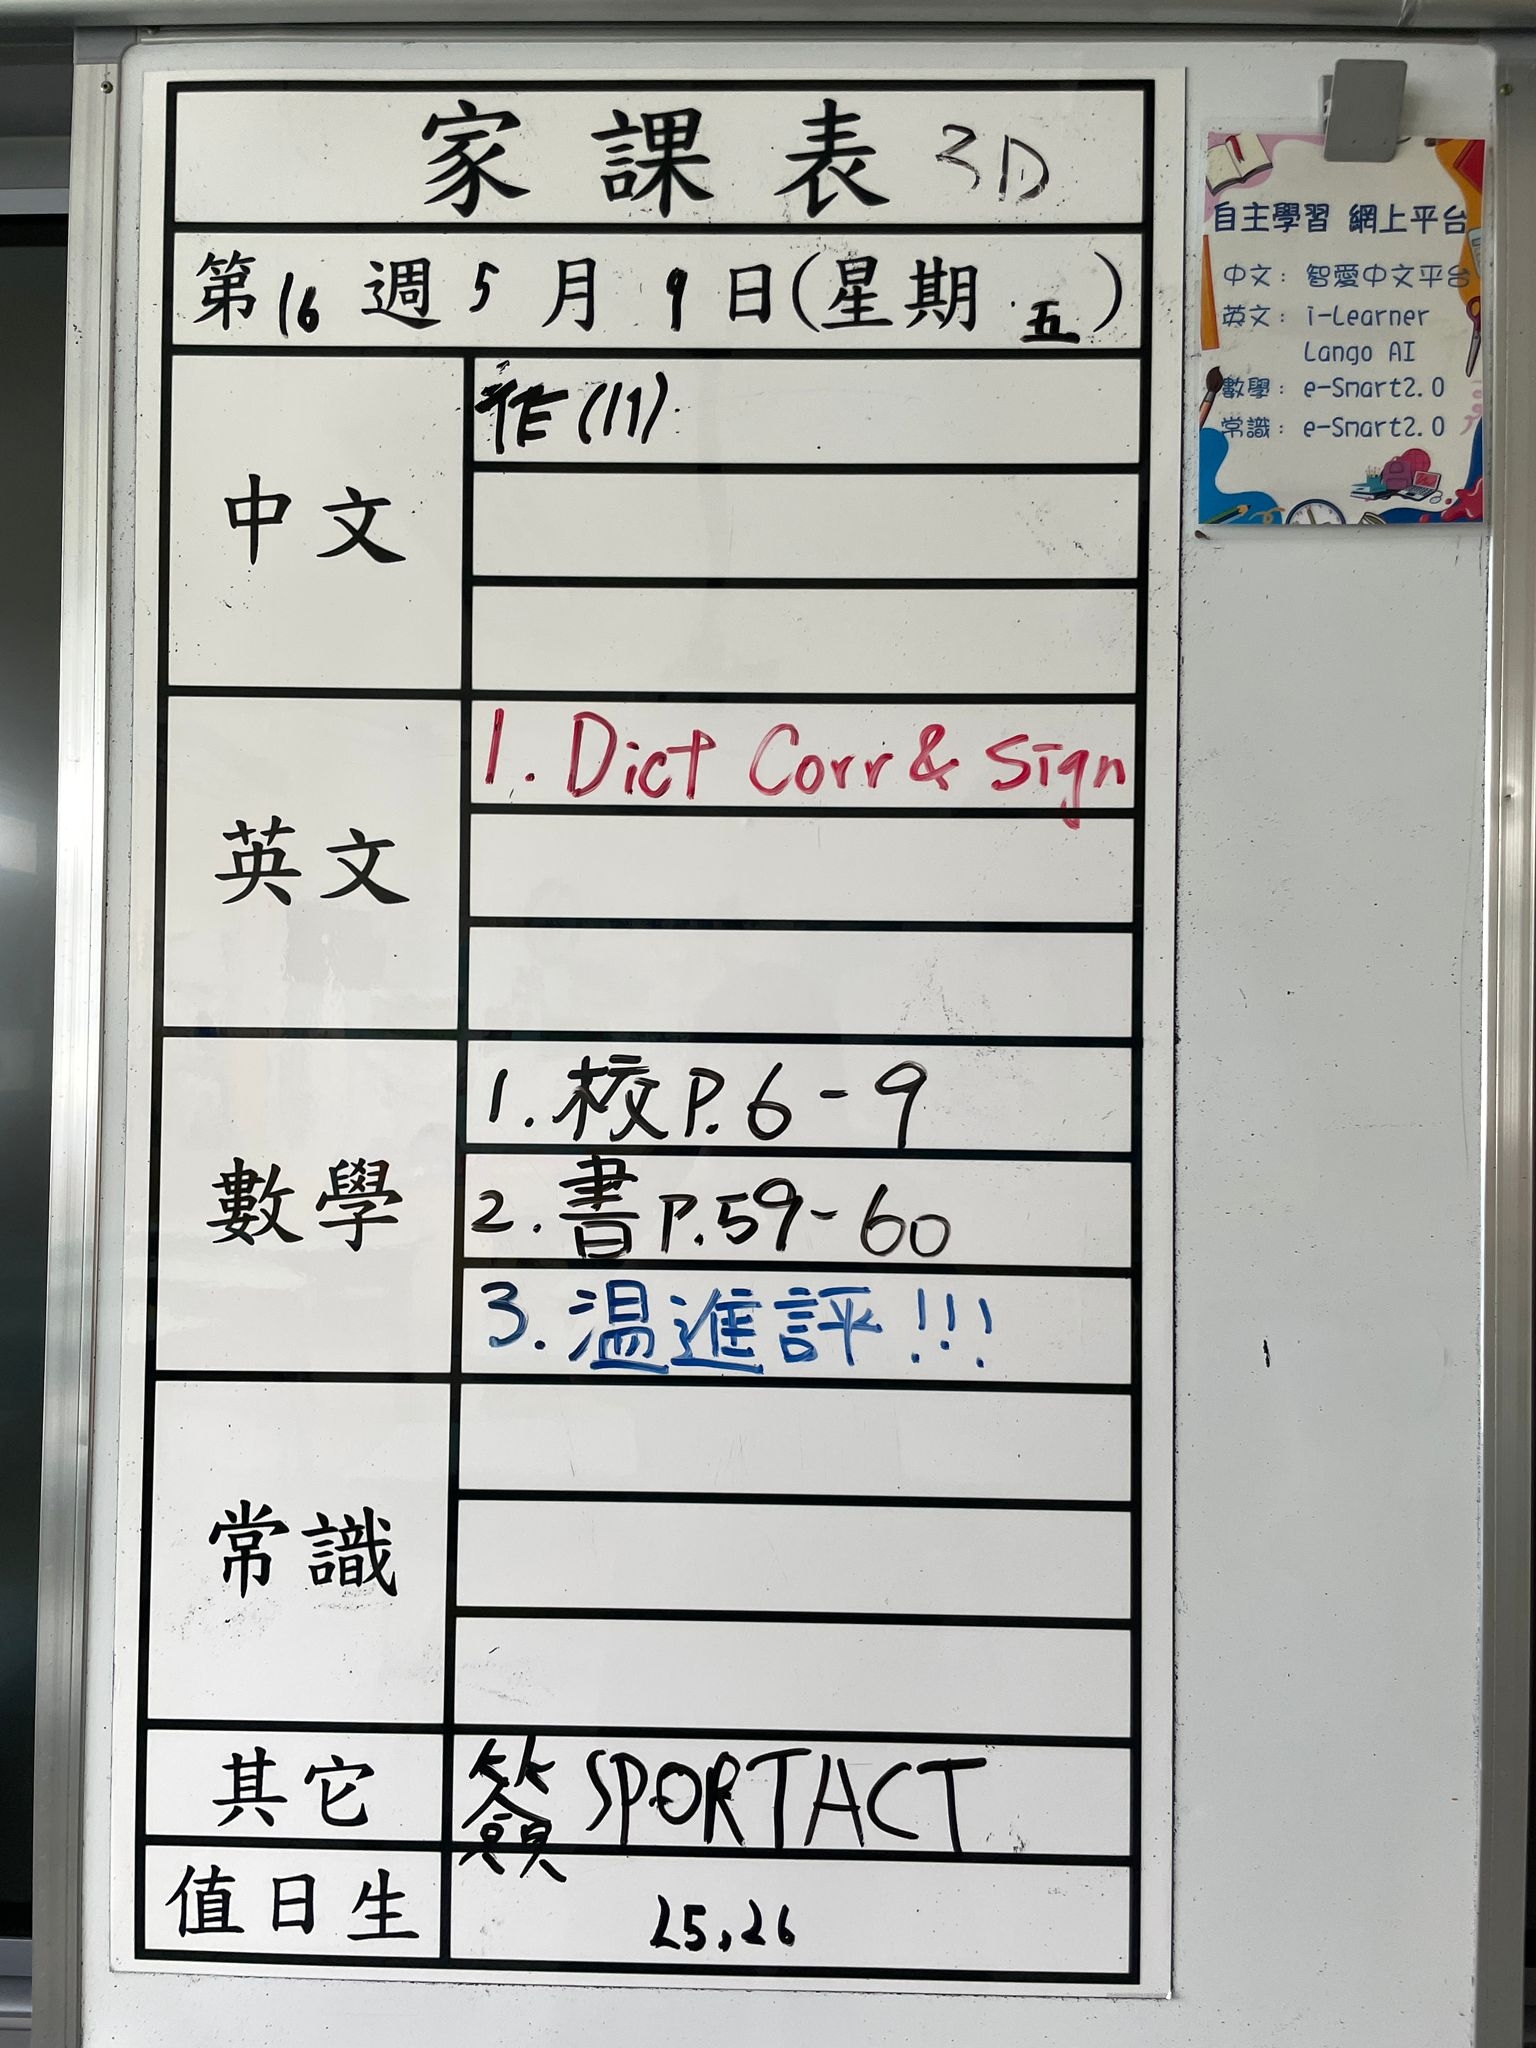 家課表 3D
第16週5月9日(星期五)
中文
作(11)
英文
1. Dict Corr & Sign
數學
1. 校P.6-9
2. 書P.59-60
3. 温進評!!!
常識
其它
簽 SPORTACT
值日生
25,26
自主學習 網上平台
中文: 智愛中文平台
英文: i-Learner
Lango AI
數學: e-Smart2.0
常識: e-Smart2.0